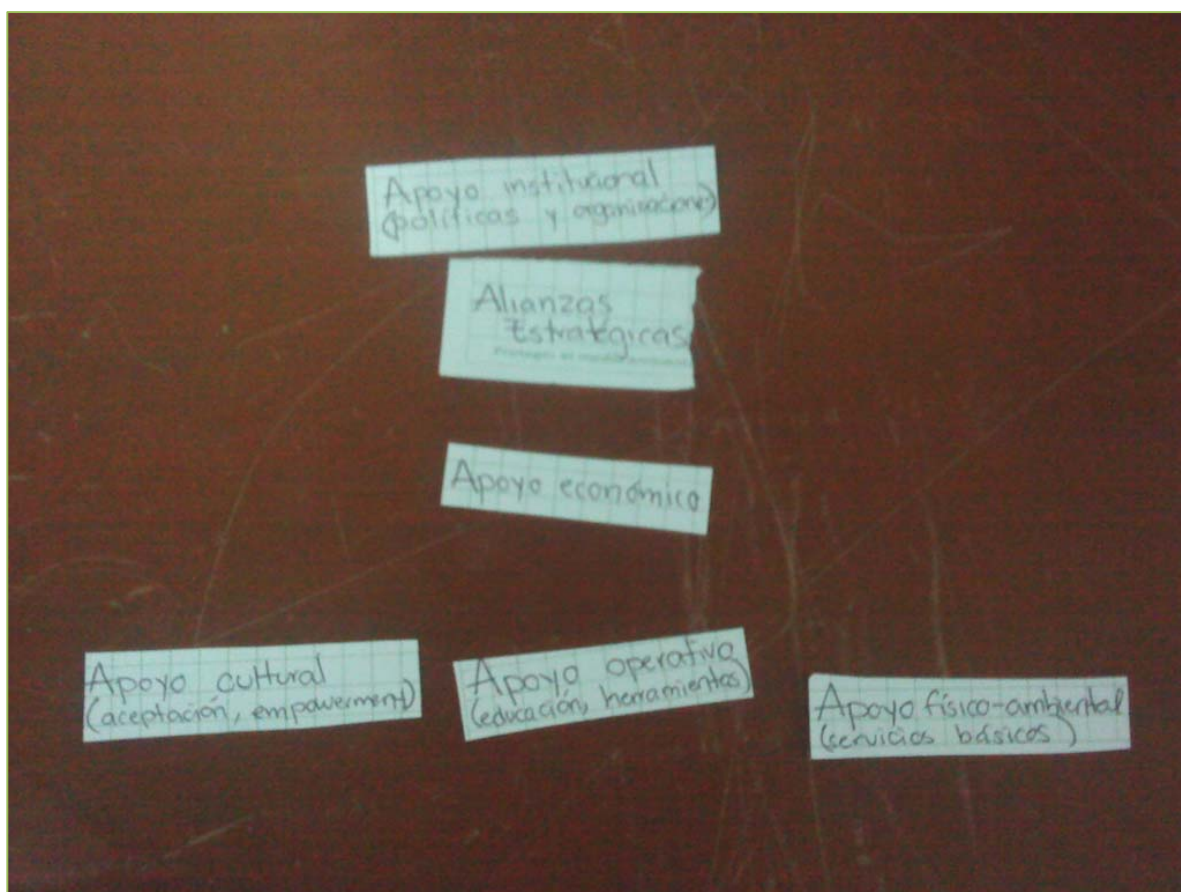 Apoyo institucional
(políticas y organizaciones)
Alianzas
Estratégicas
Apoyo económico
Apoyo cultural
(aceptación, empowerment)
Apoyo operativo
(educación, herramientas)
Apoyo físico-ambiental
(servicios básicos)